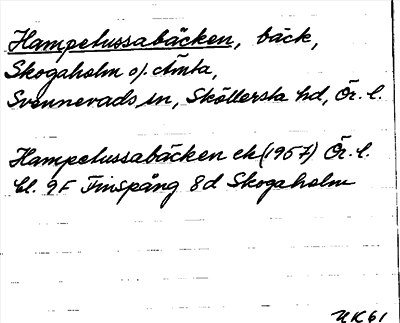 Hampetussabäcken, bäck,
Skogaholm o. Ämta,
Svennevads sn, Sköllersta hd, Ör. l.
Hampetussabäcken ek (1957) Ör. l.
bl. 9F Finspång 8d Skogaholm
UK 61